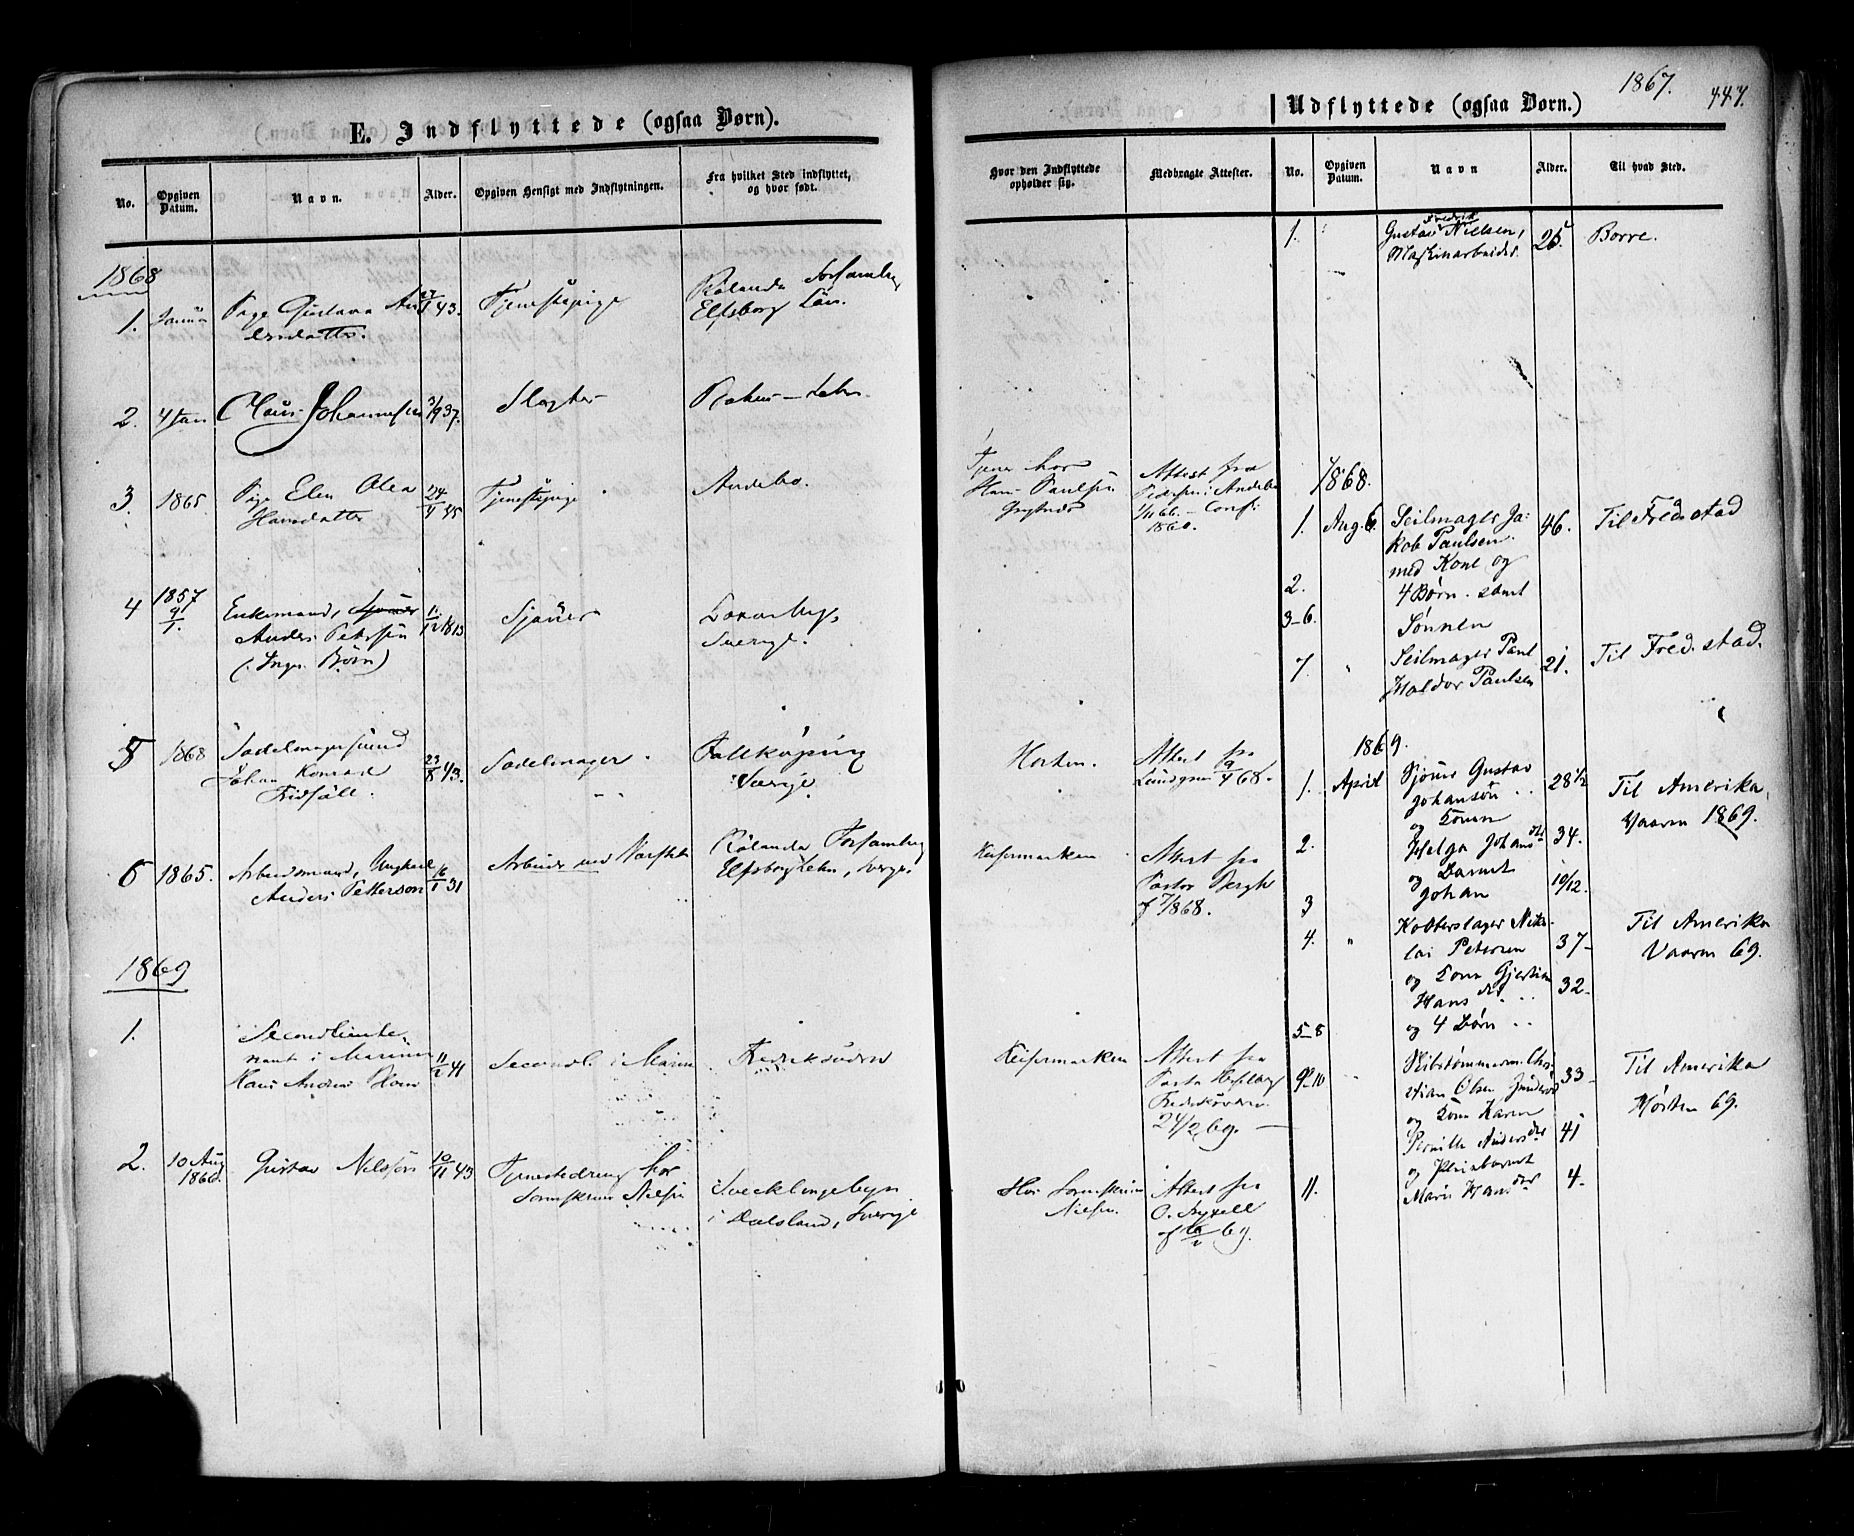 E. Indflyttede (ogsaa Børn).
No.
Opgiven Datum.
Navn.
Alder.
Opgiven Hensigt med Indflytningen.
Fra hvilket Sted indflyttet,
og hvor født.
1868
1.
Pige Gustava An
dersdatter
27/1 43.
Tjenestepige
Rølanda Forsamling
Elfsborg Län.
2.
4 Jan
Claus Johannesen
3/9 37.
Slagter
Bahus-Lehn.
3.
1865.
Pige Elen Olea
Hansdatter
24/11 45
Tjenestepige
Andebo.
4
1857
9/1.
Enkemand, Sjømand
Anders Petersen
(Ingen Børn)
11/12 1813
Sjømand
Sverige.
5
1868
Sadelmagersvend
Johan Konrad
23/8 43.
Sadelmager
Falköping
Sverige.
6
1865.
Arbeidsmand, Ungkarl
Anders Petterson
16/1 31
Arbeider ved Værftet
Rølanda Forsamling
Elfsborg Lehn, Sverige.
1869
1.
Secondlieute-
nant i Marinen
Hans Andreas
11/2 41
Secondl. i Marin
Fredriksværn
2.
10 Aug
1868.
Gustav Nilsson
10/11 43
Tjenestedreng hos
Nielsen
i Dalsland, Sverige
1867.
447.
Udflyttede (ogsaa Børn.)
Hvor den Indflyttede
opholder sig.
Medbragte Attester.
No.
Opgiven
Datum.
Navn
Alder.
Til hvad Sted.
1.
Fredrik
Gustav Nielsen,
Maskinarbeider.
25
Borre.
Tjener hos
Hans Paulsen
Attest fra
Pedersen i Andebo
1/11 66. - Conf.
1860.
1868.
1.
Aug. 6.
Seilmager Ja-
kob Paulsen.
46.
Til Fredstad
2.
med Kone og
4 Børn. samt
3-6.
Sønnen
7.
"
Seilmager Paul
Haldor Paulsen
21.
Til Fred.stad.
Horten.
Attest fra
Lundgren 9/4 68.
1869.
1.
April
Sjømd Gustav
Johansøn
28 1/2
Til Amerika,
Vaaren 1869.
og Konen
2.
Helga Johansdtr
34.
og Barnet
3
Johan
10/12.
Keisermarken
Attest fra
Pastor Bergh
af 7/1868.
4.
"
Kobberslager Niko-
lai Petersen
37-
Til Amerika
Vaaren 69.
og Kone Gjertine
Hansdtr
32-
5-8
og 4 Børn
Keisermarken
Attest fra
Pastor
Fredriksværn.
24/2 69.
9-10
Skibstømmerm. Chri
stian Olsen
33-
Til Amerika
Høsten 69.
og Kone Karen
Pernille Andersdtr
41
og Pleiebarnet
11.
Maren Hansdtr
4-
Hos
Nielsen.
Attest fra
O.
69.